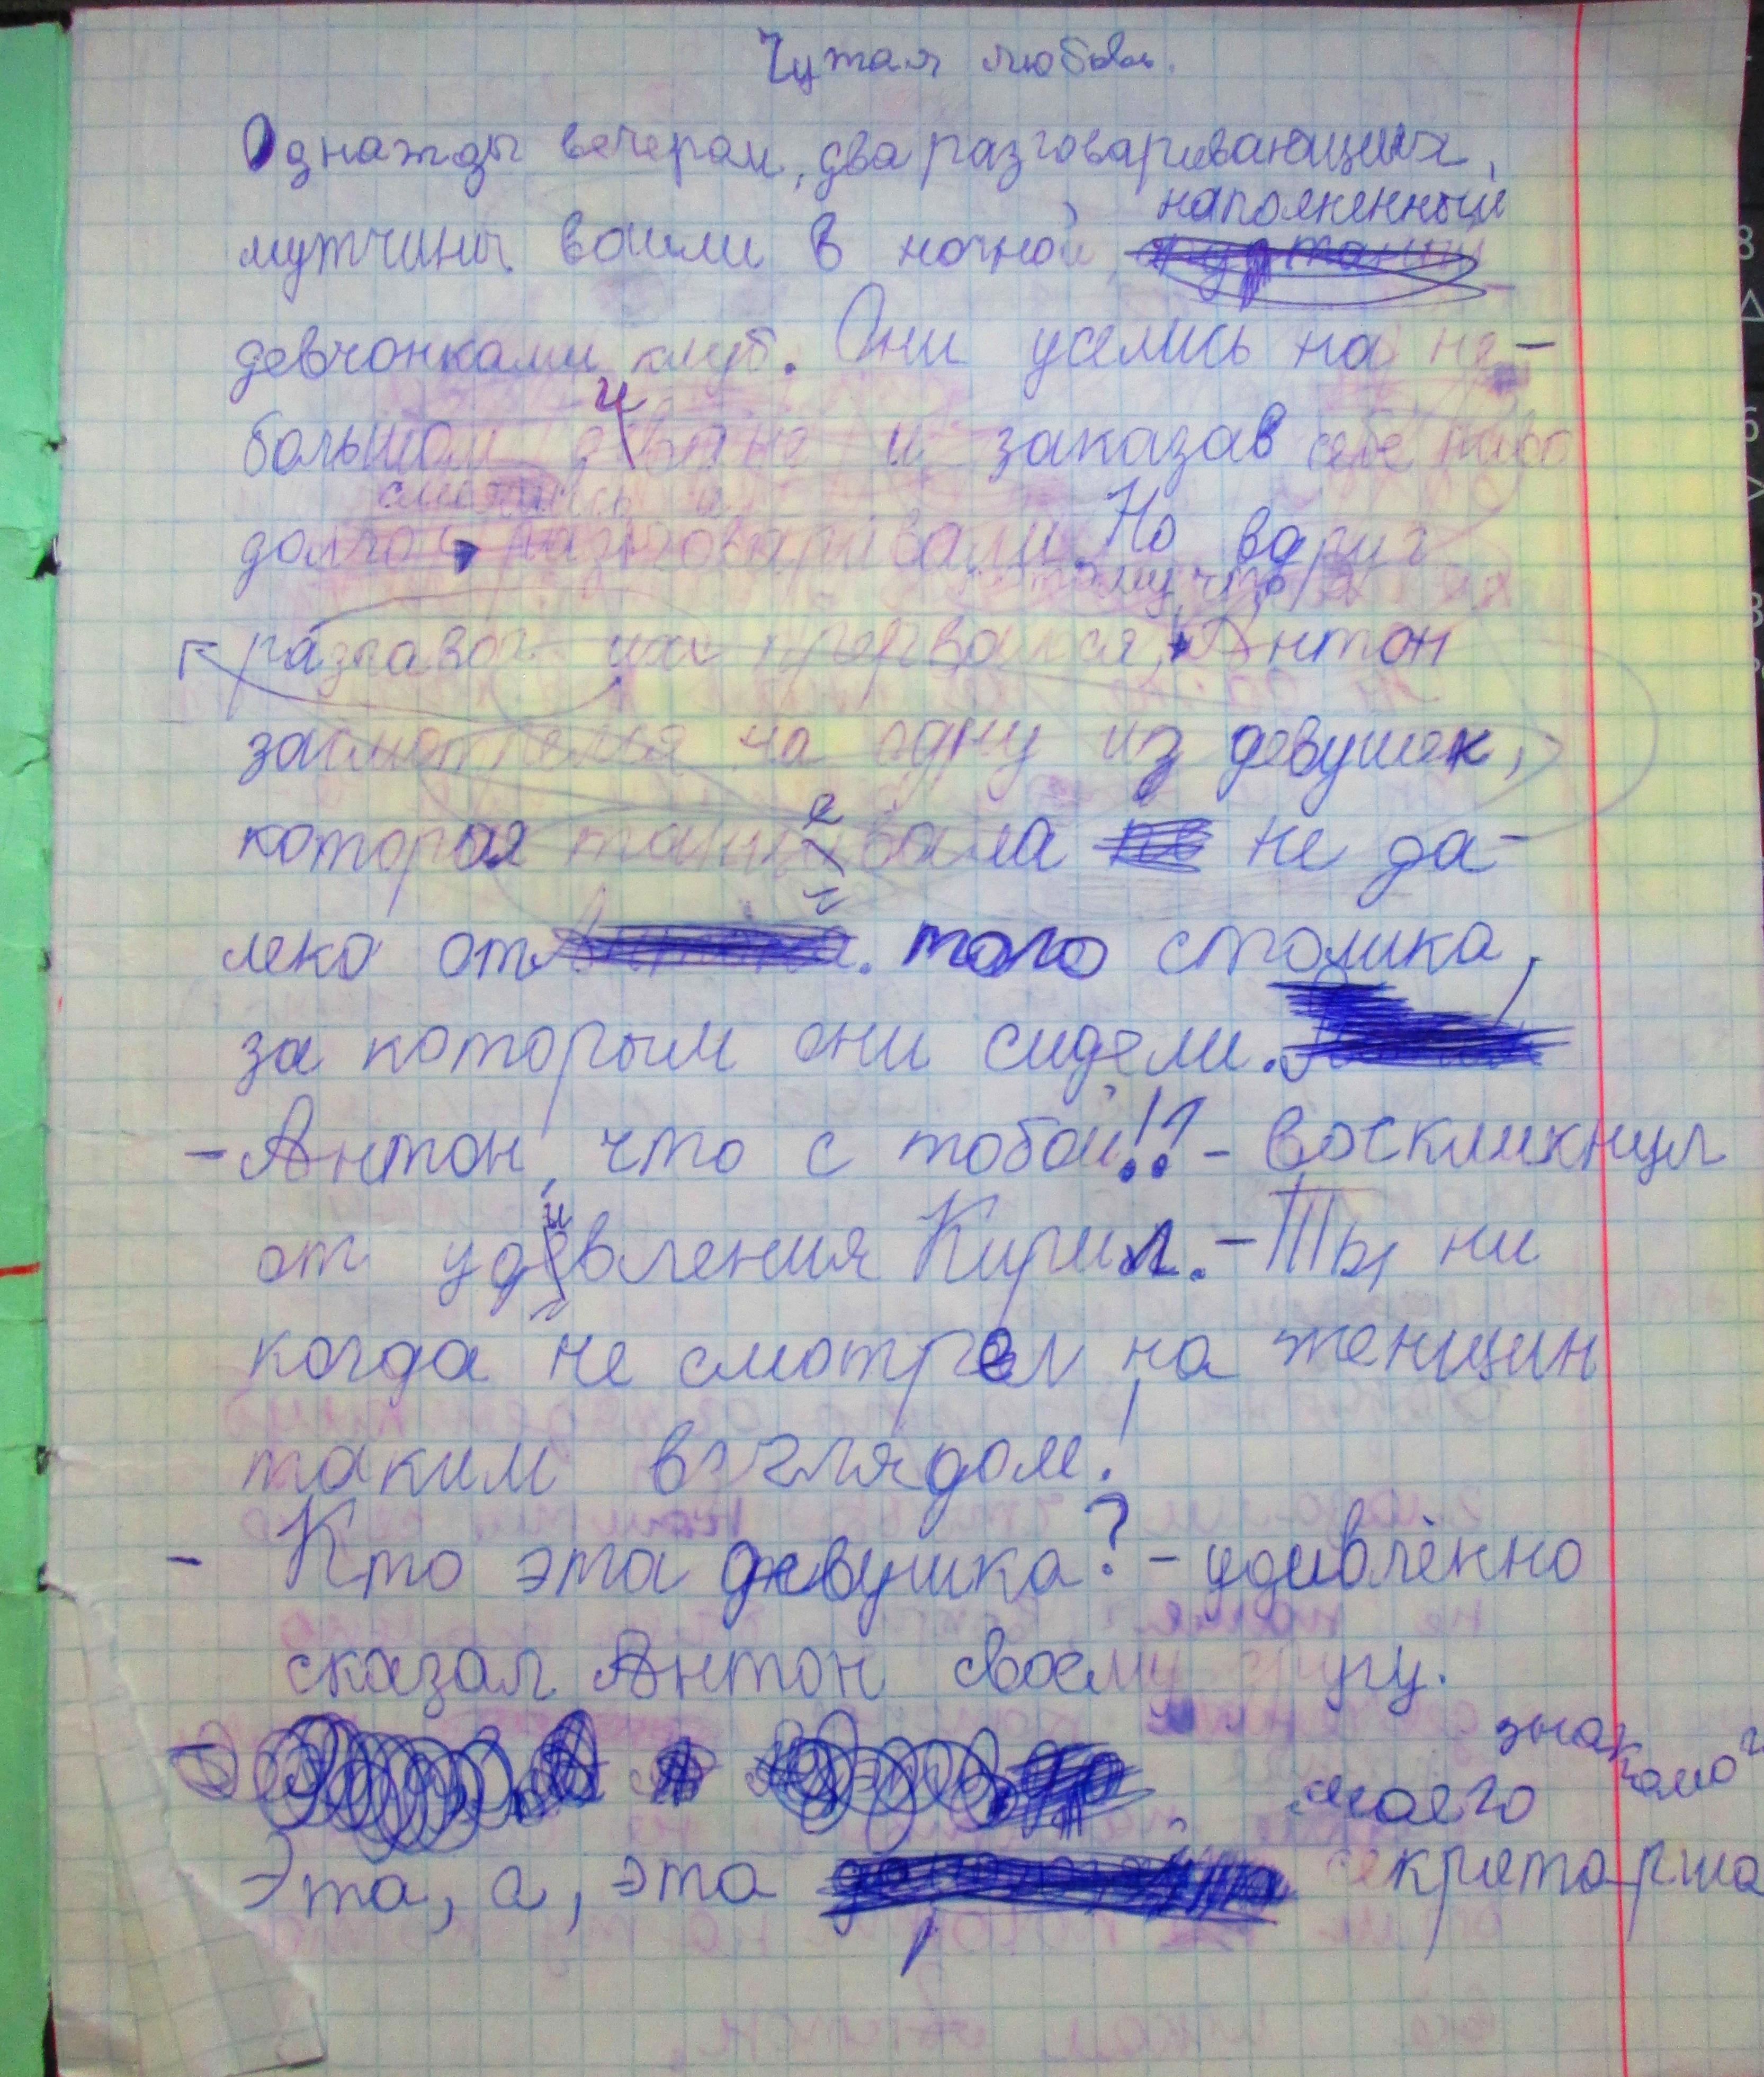 Чужая любовь.
Однажды вечером, два разговаривающих,
мужчины вошли в ночной наполненный
девчонками клуб. Они уселись на не-
большом диване и заказав себе пиво
долго смеялись и разговаривали. Но вдруг
разгавор их прервался, тому, что Антон
засмотрелся на одну из девушек,
которая танцевала не да-
леко от того столика,
за которым они сидели.
- Антон, что с тобой!? - воскликнул
от удивления Кирил. - Ты, ни
когда не смотрел на женщин
таким взглядом!
- Кто эта девушка? - удивлённо
сказал Антон своему другу.
Эта, а, эта моего знакомого секретарша